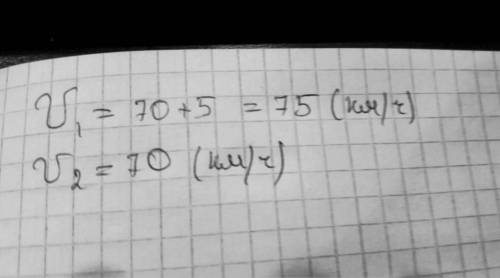 V₁ = 70 + 5 = 75 (км/ч)
V₂ = 70 (км/ч)